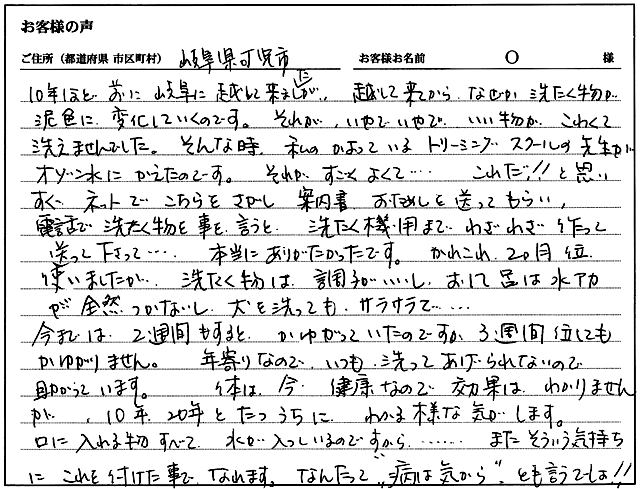 お客様の声
ご住所（都道府県 市区町村） 岐阜県可児市 お客様お名前 ○ 様
10年ほど前に 岐阜に 越して来ましたが、越して来てから なぜか 洗たく物が
泥色に 変化していくのです。それが、いやでいやで、いい物が こわくて
洗えませんでした。そんな時、私のかよっている トリーミングスクールの先生が
オゾン水に かえたのです。それが すごくよくて…… これだ!!と思い
すぐ ネットで こちらを さがし 案内書、おためしを送ってもらい、
電話で 洗たく物を事を言うと 洗たく機用まで わざわざ作って
送って下さって…… 本当にありがたかったです。かれこれ 2ヶ月位
使いましたが、洗たく物は 調子がいいし、おフロは水アカ
が 全然 つかないし、犬を洗っても、サラサラで……
今までは 2週間もすると かゆがっていたのですが 3週間位しても
かゆがりません。 年寄りなので、いつも 洗ってあげられないので
助かっています。 体は、今 健康なので 効果は わかりません
が、10年 20年とたつうちに わかる様な気がします。
口に入れる物すべて 水が入っているのですから…… またそういう気持ち
に これを付けた事で なれます。なんたって "病は気から"、とも言うでしょ!!